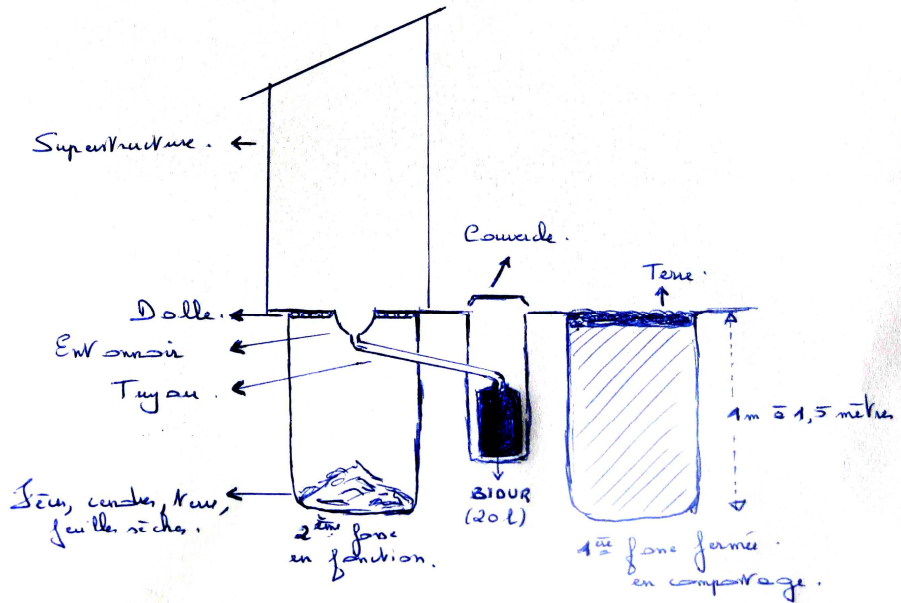 Superstructure.
Couvercle.
Terre.
Dalle.
Entonnoir
Tuyau.
1m à 1,5 mètres
Fèces, cendres, terre,
feuilles sèches.
BIDUR
(20 l)
2ème fosse
en fonction.
1ère fosse fermée.
en compostage.